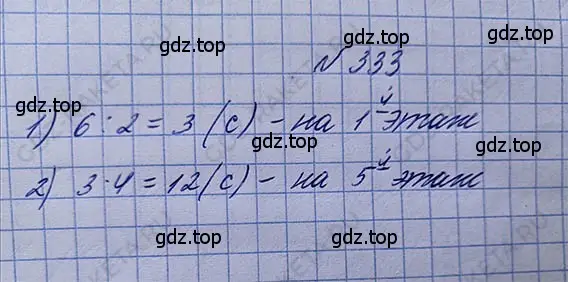 gdz.top
№ 333
gdz.top gdz.top
1) 6 : 2 = 3 (с) - на 1й этаж
gdz.top gdz.top
2) 3 · 4 = 12 (с) - на 5й этаж
gdz.top
gdz.top gdz.top